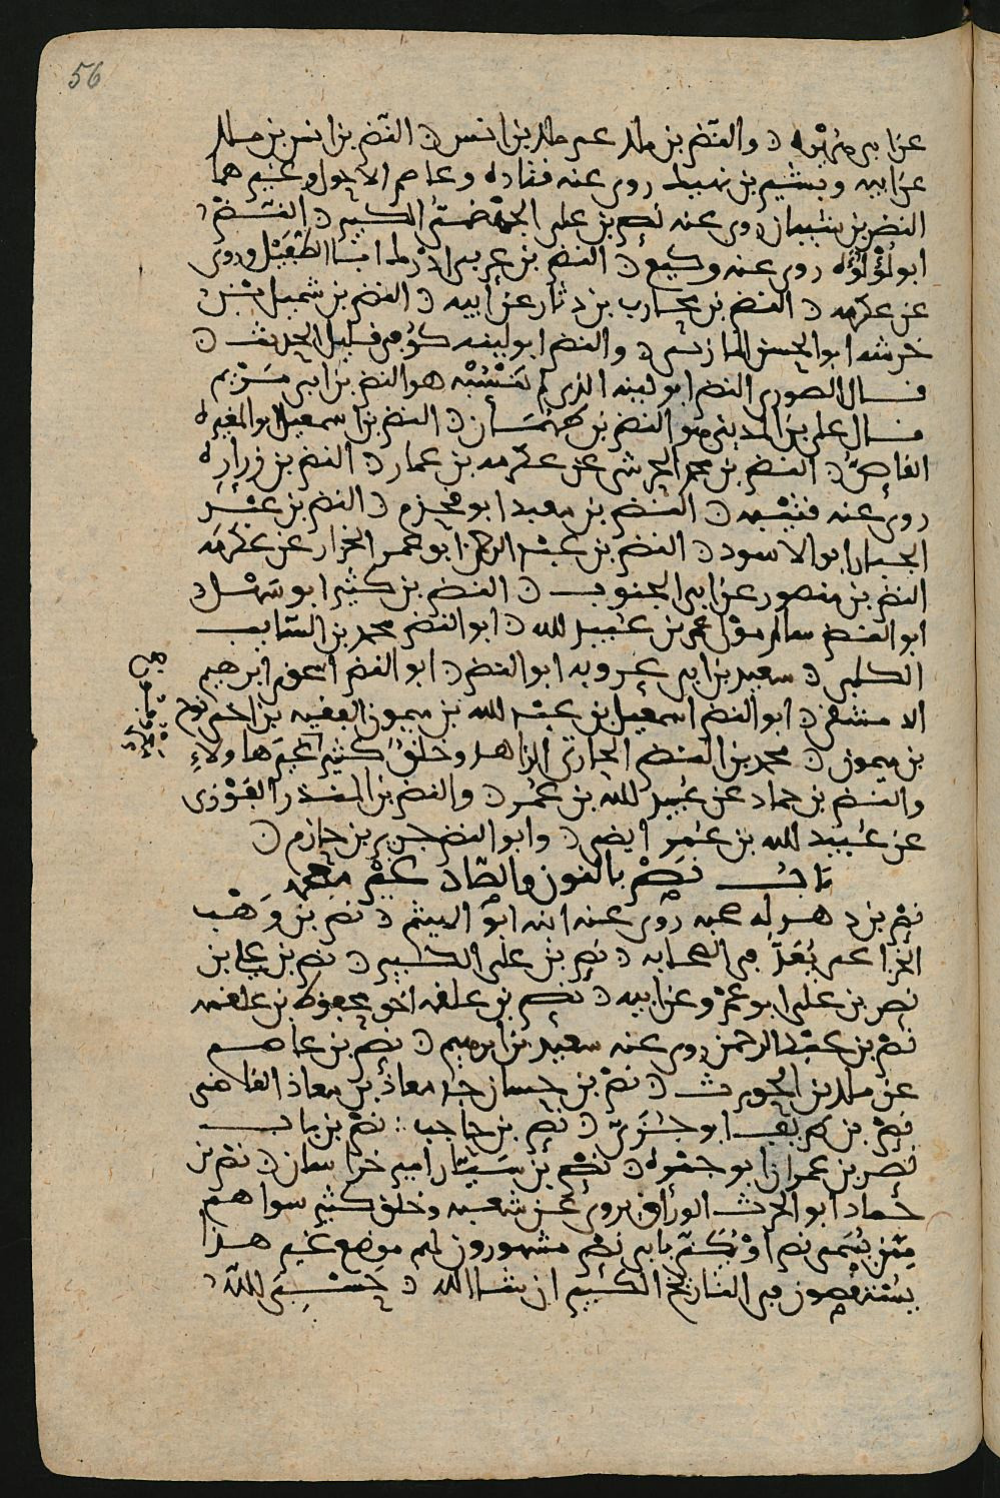 56
عن ابي هريره ن والنضر بن ملك عم ملك بن انس ن النضر بن انس بن ملك
عن ابيه وبشير بن نهيك روى عنه قتاده وعاصم الاحول وغيرهما
النضر بن شيبان روى عنه نصر بن علي الجهضمي الكبير ن النضر
ابو لؤلؤه روى عنه وكيع ن النضر بن عربي ادرك ابا الطفيل وروى
عن عكرمه ن النضر بن محارب بن دثار عن ابيه ن النضر بن شميل بن
خرشه ابو الحسن المازني ن والنضر ابو لينه كوفي قليل الحديث ن
قال الصوري النضر ابو لينه الذي لم ينسبه هو النضر بن ابي مريم
قال علي بن المديني هو النضر بن طهمان ن النضر بن اسمعيل ابو المغيره
القاص ن النضر بن محمد الجرشي عن عكرمه بن عمار ن النضر بن زراره
روى عنه قتيبه ن النضر بن معبد ابو قحذم ن النضر بن عبد
الجبار ابو الاسود ن النضر بن عبد الرحمن ابو عمر الخزاز عن عكرمه
النضر بن منصور عن ابي الجنوب ن النضر بن كثير ابو سهل ن
ابو النضر سالم مولى عمر بن عبيد الله ن ابو النضر محمد بن السايب
الكلبي ن سعيد بن ابي عروبه ابو النضر ن ابو النضر اسحق بن ابرهيم
الدمشقي ن ابو النضر اسمعيل بن عبد الله بن ميمون الفقيه بن اخي نوح
بن ميمون ن محمد بن النضر الحارثي الزاهد وخلق كثير غير هاولاء
والنضر بن حماد عن عبيد الله بن عمر ن والنضر بن المنذر الفوزي
عن عبيد الله بن عمر ايضا ن وابو النضر جرير بن حازم ن
باب نصر بالنون والصاد غير معجمه
نصر بن دهر له صحبه روى عنه ابنه ابو الهيثم ن نصر بن وهب
الخزاعي يعد في الصحابه ن نصر بن علي الكبير ن نصر بن علي بن
نصر بن علي ابو عمرو عن ابيه ن نصر بن علقمه اخو محفوظ بن علقمه
نصر بن عبد الرحمن روى عنه سعيد بن ابرهيم ن نصر بن عاصم
عن ملك بن الحويرث ن نصر بن حسان جد معاذ بن معاذ القاضي
نصر بن طريف ابو جزي ن نصر بن حاجب نصر بن باب
نصر بن عمران ابو جمره ن نصر بن سيار امير خراسان ن نصر بن
حماد ابو الحرث الوراق يروي عن شعبه وخلق كثير سواهم
ممن يسمى نصر او يكنى بابي نصر مشهورون لهم موضع غير هذا
يستقصون في التاريخ الكبير ان شا الله ن حسبي الله